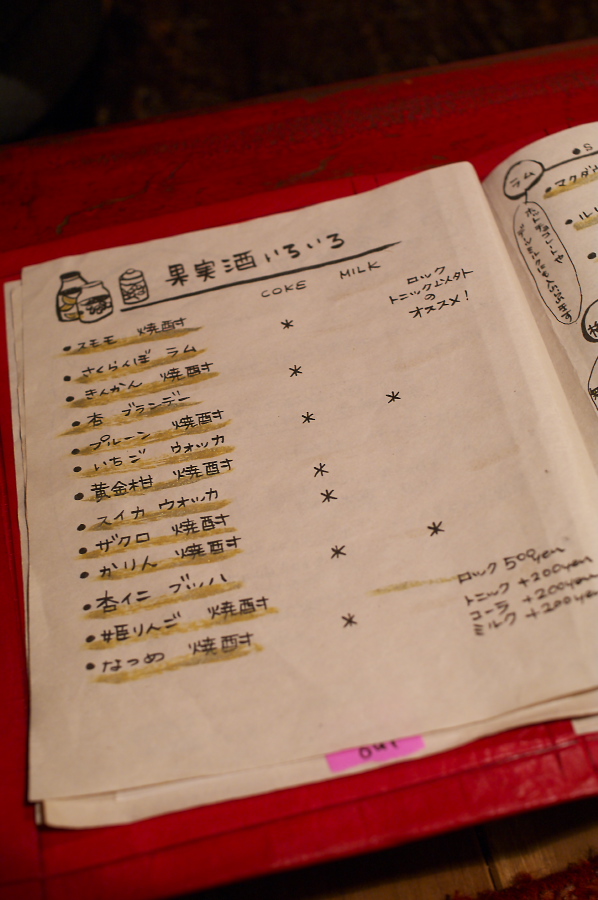 果実酒いろいろ
COKE MILK
ロック
トニック
の
オススメ!
• スモモ 焼酎 *
• さくらんぼ ラム
• きんかん 焼酎 *
• 杏 ブランデー *
• プルーン 焼酎 *
• いちご ウォッカ
• 黄金柑 焼酎 *
• スイカ ウォッカ *
• ザクロ 焼酎
• かりん 焼酎 * *
• 杏イニ
• 姫りんご 焼酎 *
• なつめ 焼酎
ロック 500yen
トニック +200yen
コーラ +200yen
ミルク +200yen
out
ラム
• S
• マクダ
• ルリ